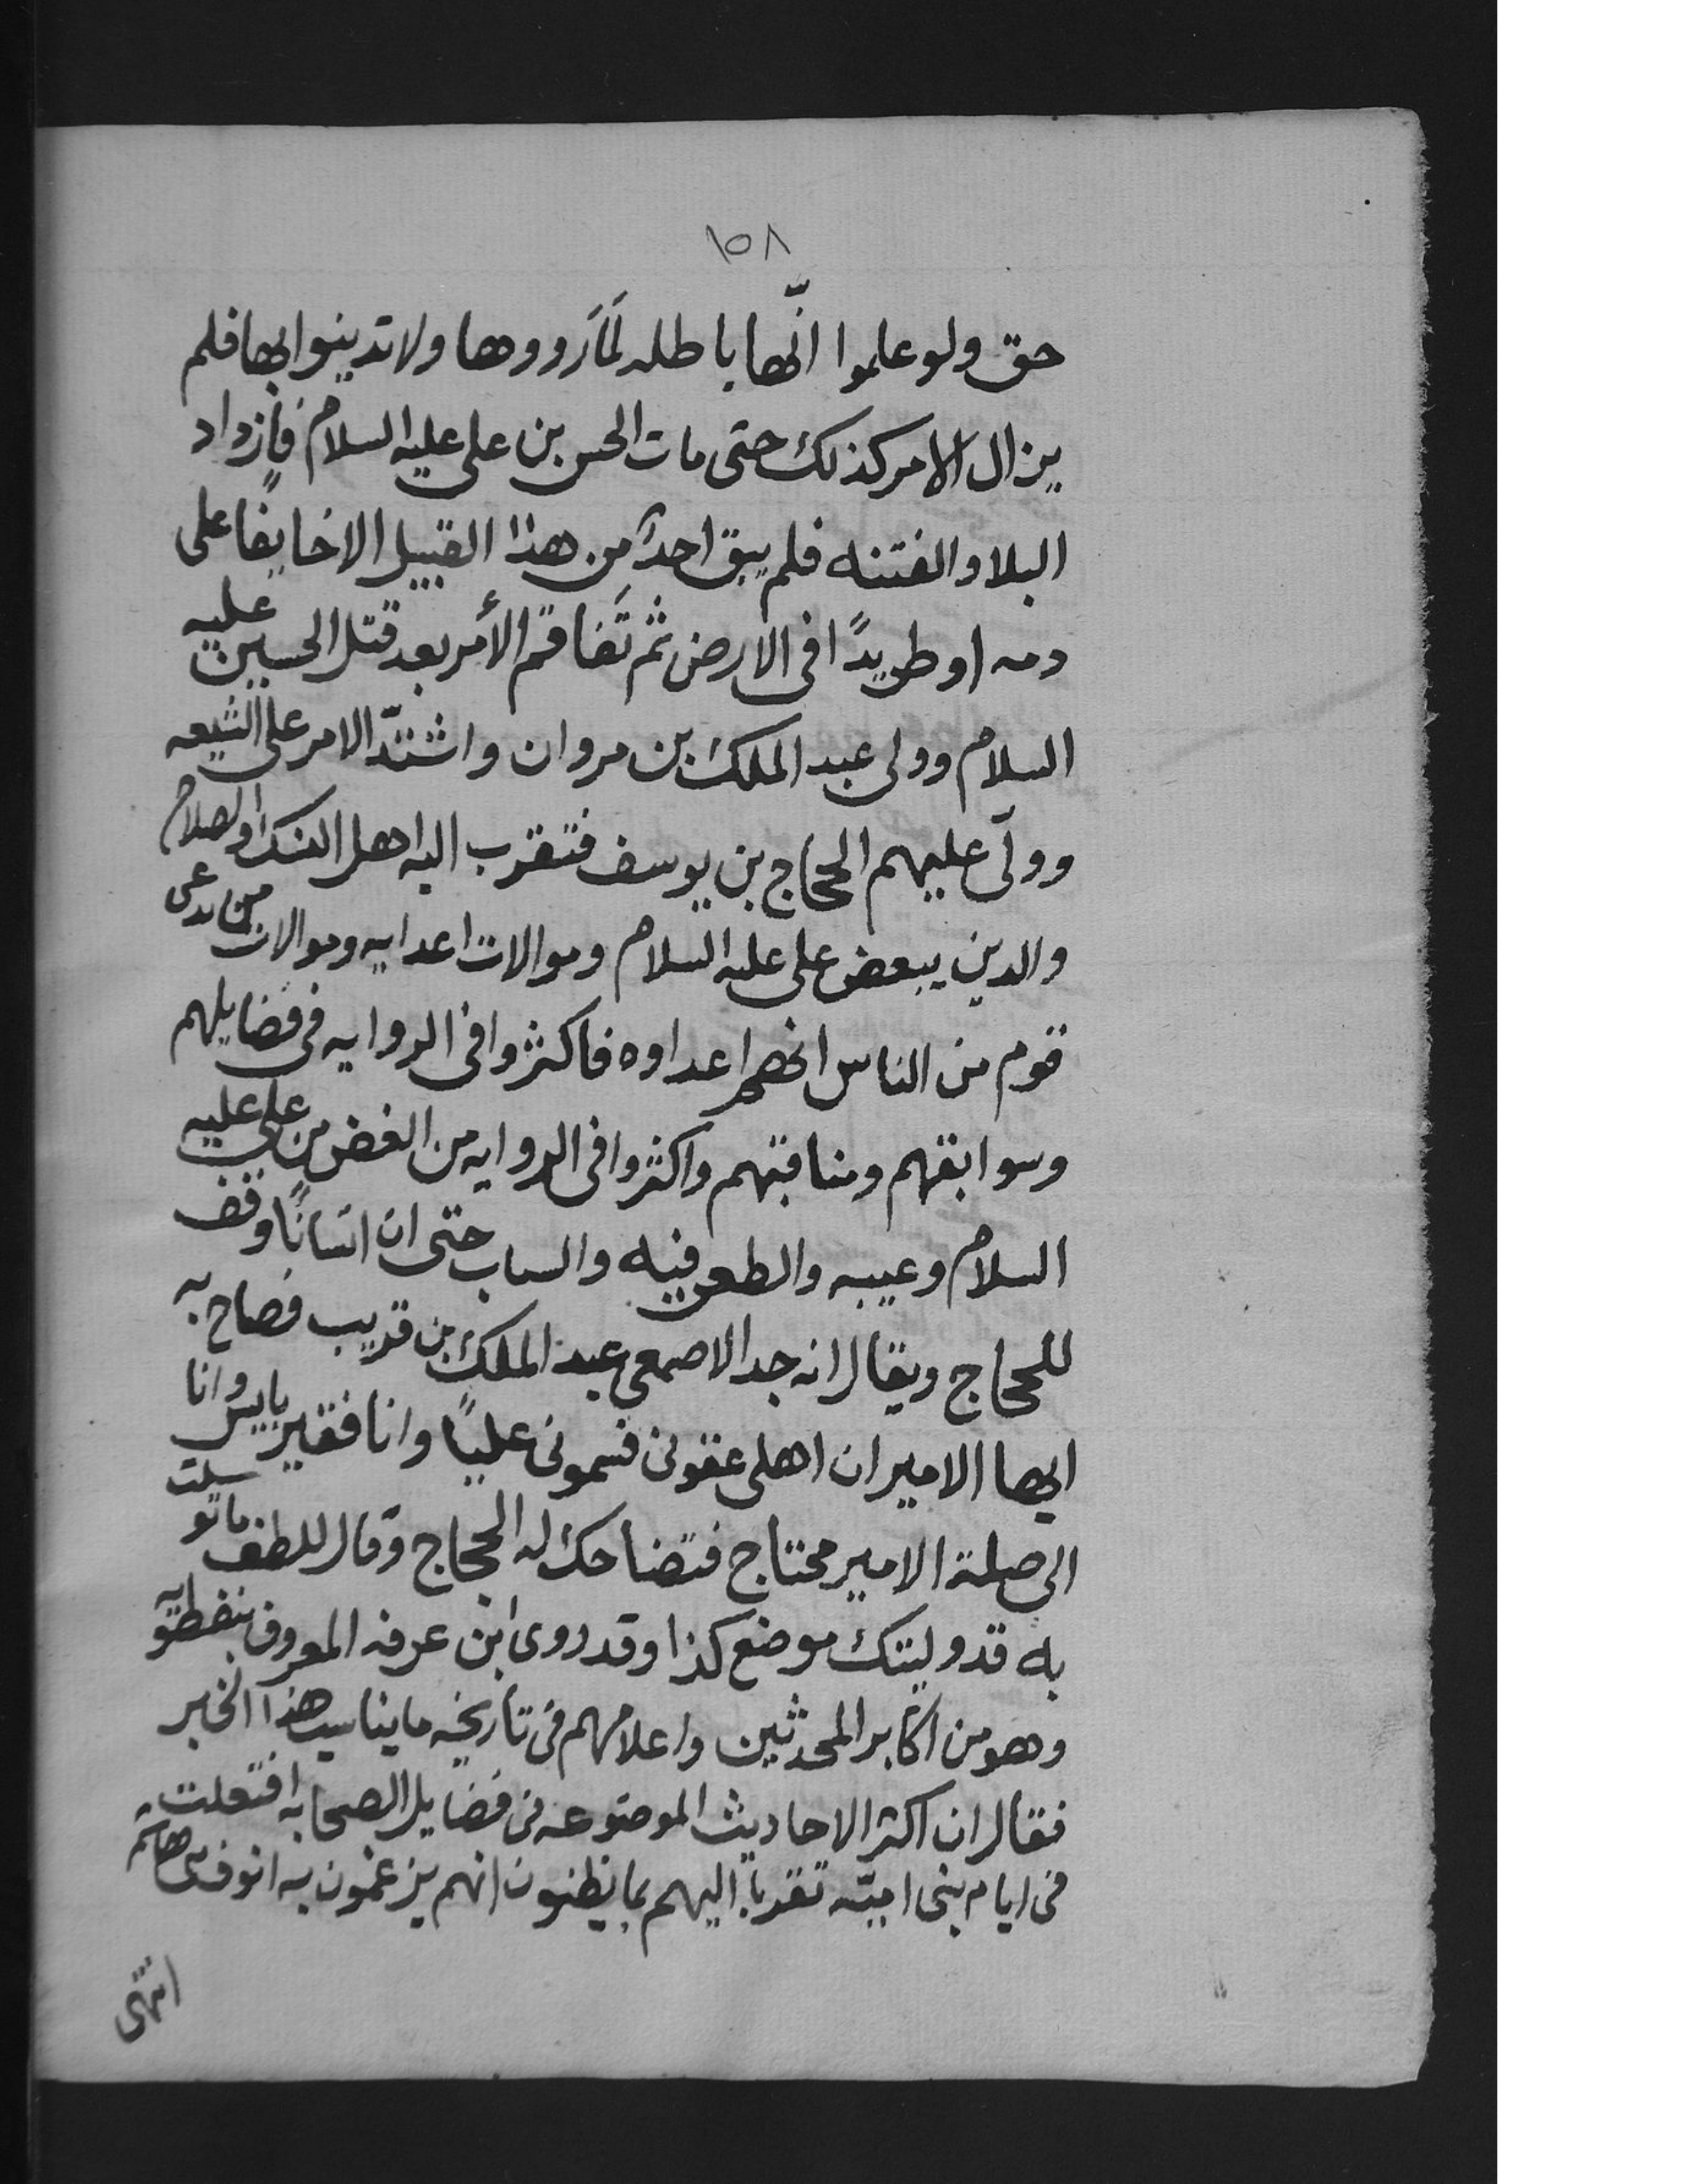 ١٥٨
حق ولو علموا انّها باطله لَمَا رووها ولا تدينوا بها فلم
يزال الامر كذلك حتى مات الحسن بن على عليه السلام فازداد
البلا والفتنه فلم يبق احدًا من هذا القبيل الا خايفًا على
دمه او طريدًا فى الارض ثم تَفاقم الأمر بعد قتل الحسين عليه
السلام وولى عبد الملك بن مروان واشتدّ الامر على الشيعه
وولّى عليهم الحجاج بن يوسف فتقرب اليه اهل النسك والصلاح
والدين ببعض على عليه السلام وموالات اعدايه وموالات من يدعى
قوم من الناس انهم اعداوه فاكثروا فى الروايه فى فضايلهم
وسوابقهم ومناقبهم واكثروا فى الروايه من الغض من على عليه
السلام وعيبه والطعن فيه والساب حتى ان انسانًا وقف
للحجاج ويقال انه جد الاصمعى عبد الملك بن قريب فصاح به
ايها الامير ان اهلى عقونى فسمونى عليًا وانا فقير بايس وانا
الى صلة الامير محتاج فتضاحك له الحجاج وقال للطف ما توسلت
به قد وليتك موضع كذا وقد روى ابن عرفه المعروف بنفطويه
وهو من اكابر المحدثين واعلامهم فى تاريخه ما يناسب هذا الخبر
فقال ان اكثر الاحاديث الموضوعه فى فضايل الصحابه افتعلت
فى ايام بنى اميّه تقربا اليهم بما يظنون انهم يزعمون به انوف بنى هاشم
انتهى